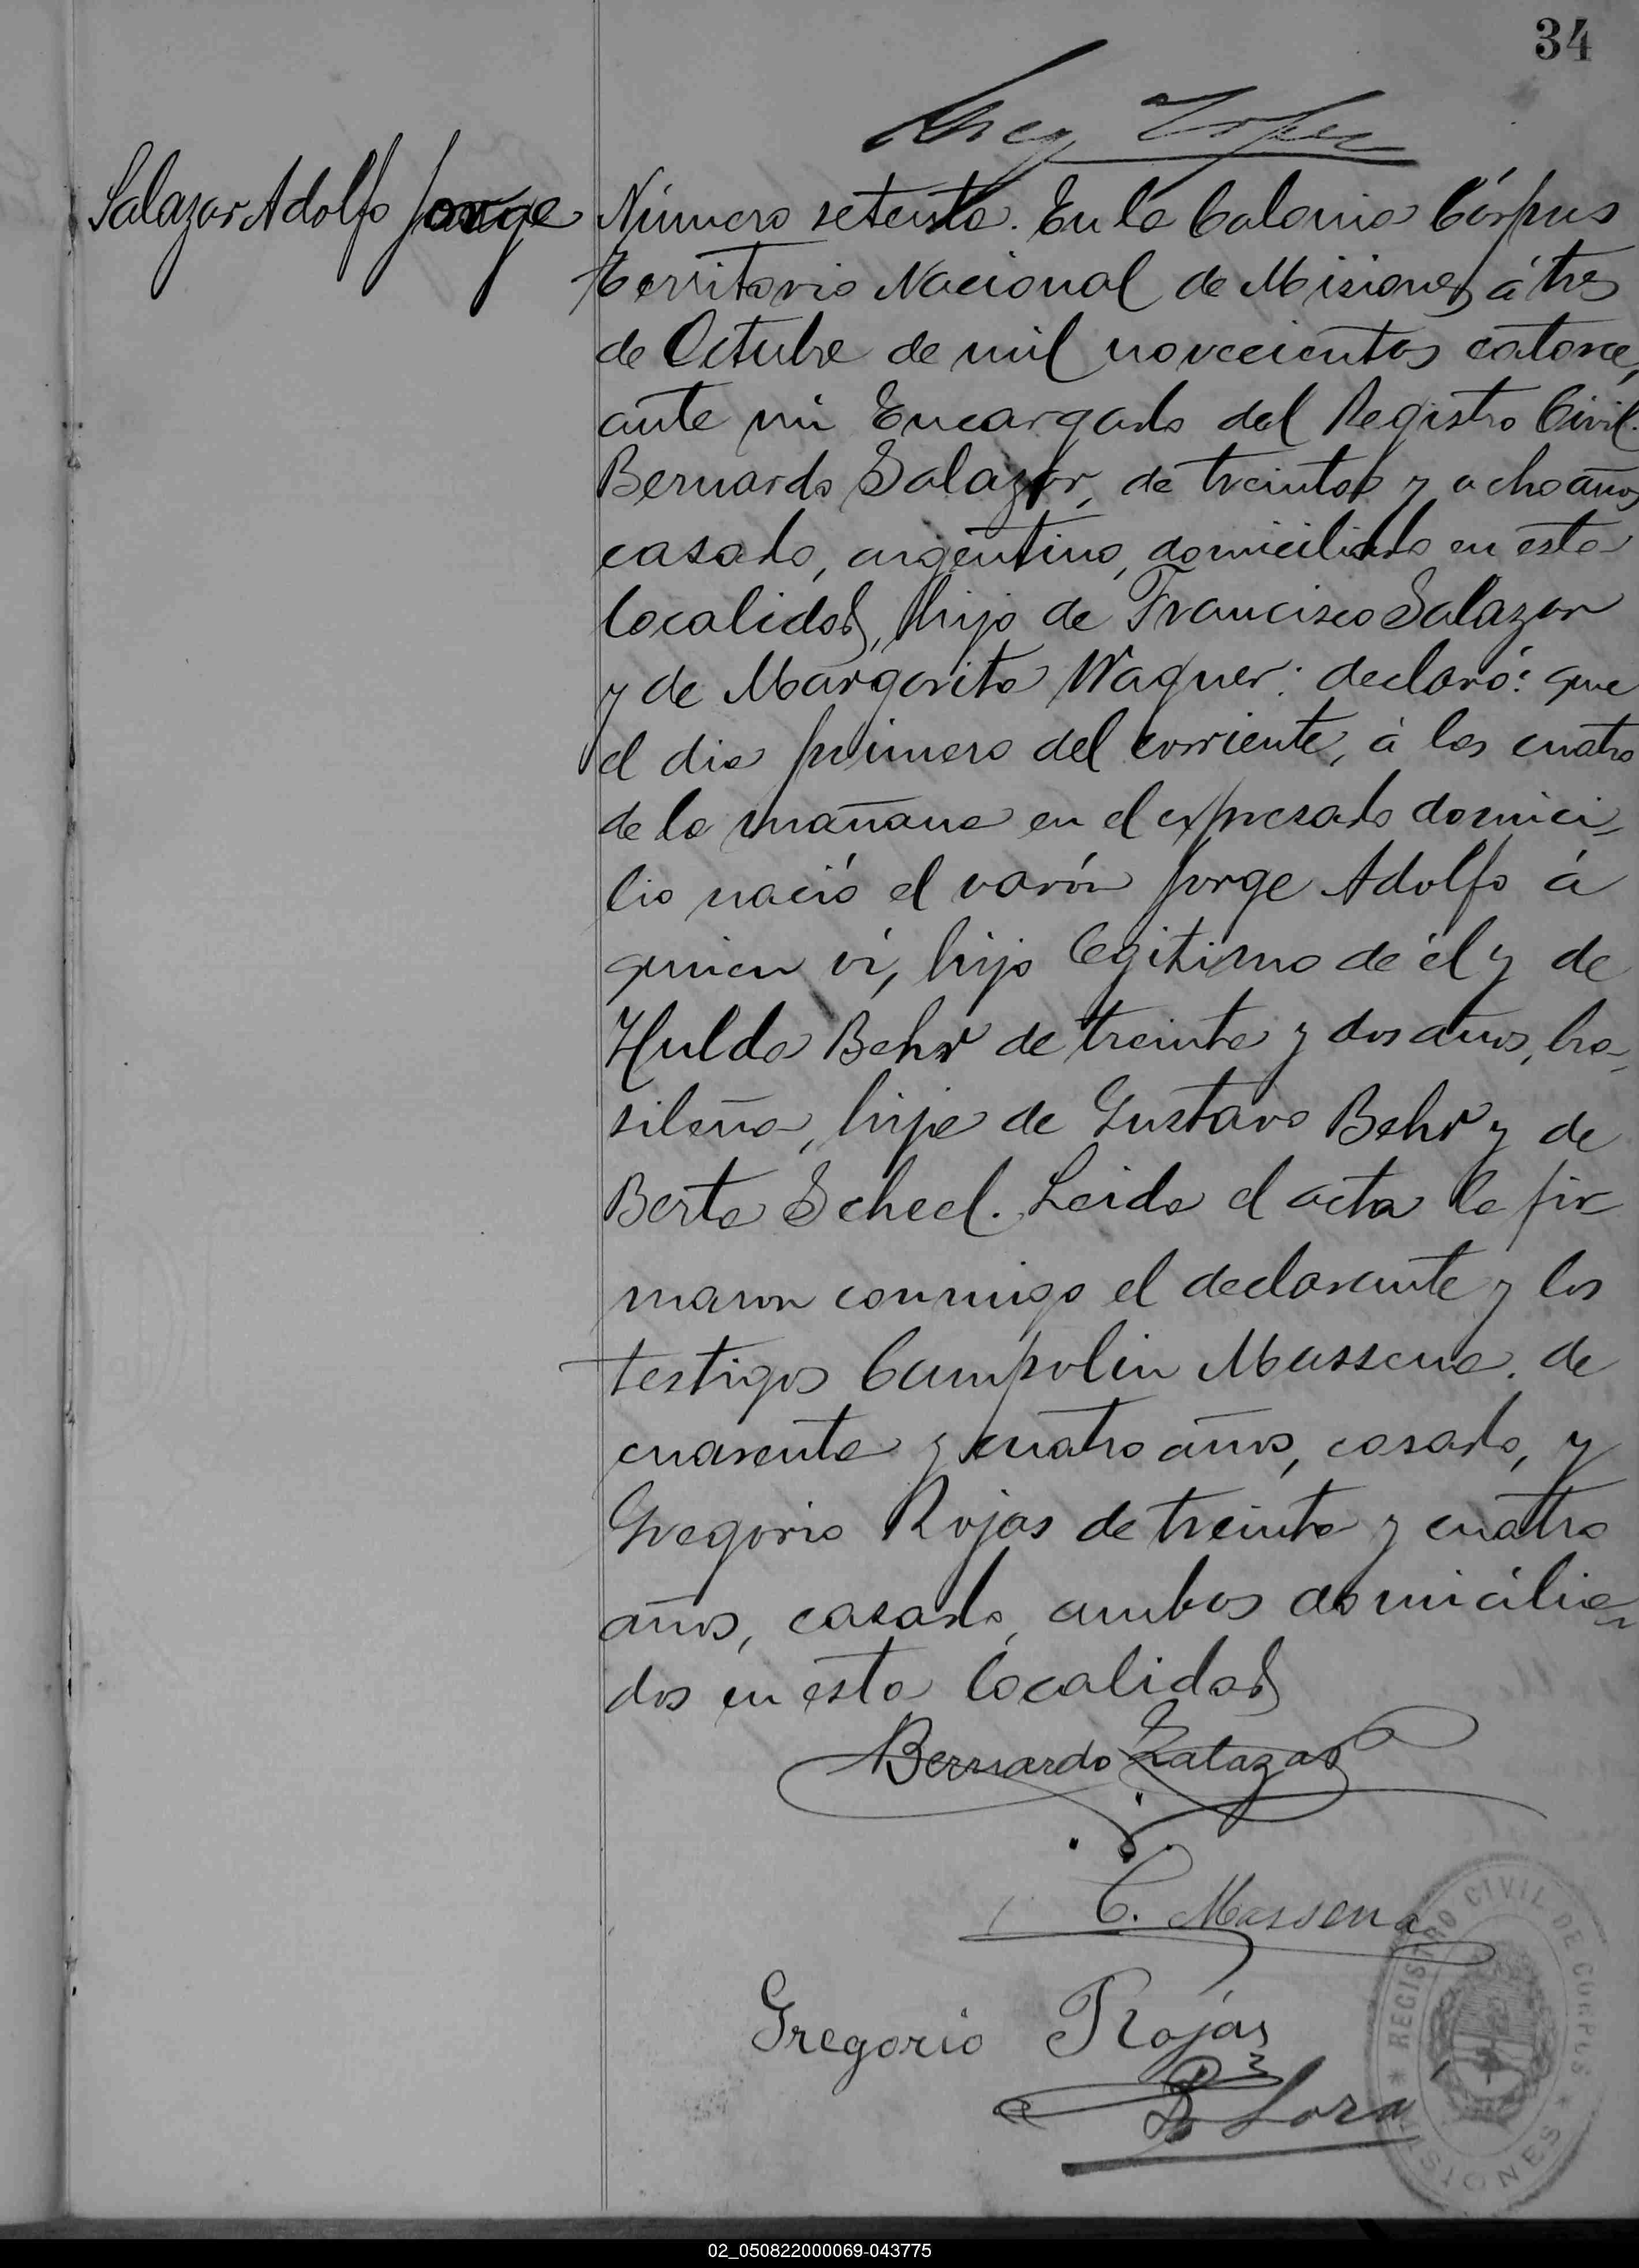 34
Greg Lopez
Salazar Adolfo Jorge
Número setenta. En la Colonia Córpus
Territorio Nacional de Misiones á tres
de Octubre de mil novecientos catorce,
ante mi Encargado del Registro Civil.
Bernardo Salazar, de treinta y ocho años
casado, argentino, domiciliado en esta
localidad, hijo de Francisco Salazar
y de Margarita Wagner: declaró: que
el dia primero del corriente, à las cuatro
de la mañana en el expresado domici-
lio nació el varón Jorge Adolfo á
quien ví, hijo legitimo de él y de
Hulda Behr de treinta y dos años, bra-
sileña, hija de Gustavo Behr y de
Berta Scheel. Leida el acta la fir
maron conmigo el declarante y los
testigos Campolin Massena. de
cuarenta y cuatro años, casado, y
Gregorio Rojas de treinta y cuatro
años, casado, ambos domicilia-
dos en esta localidad
Bernardo Salazar
C. Massena
Gregorio Rojas
Lora
REGISTRO CIVIL DE CORPUS
MISIONES
02_050822000069-043775